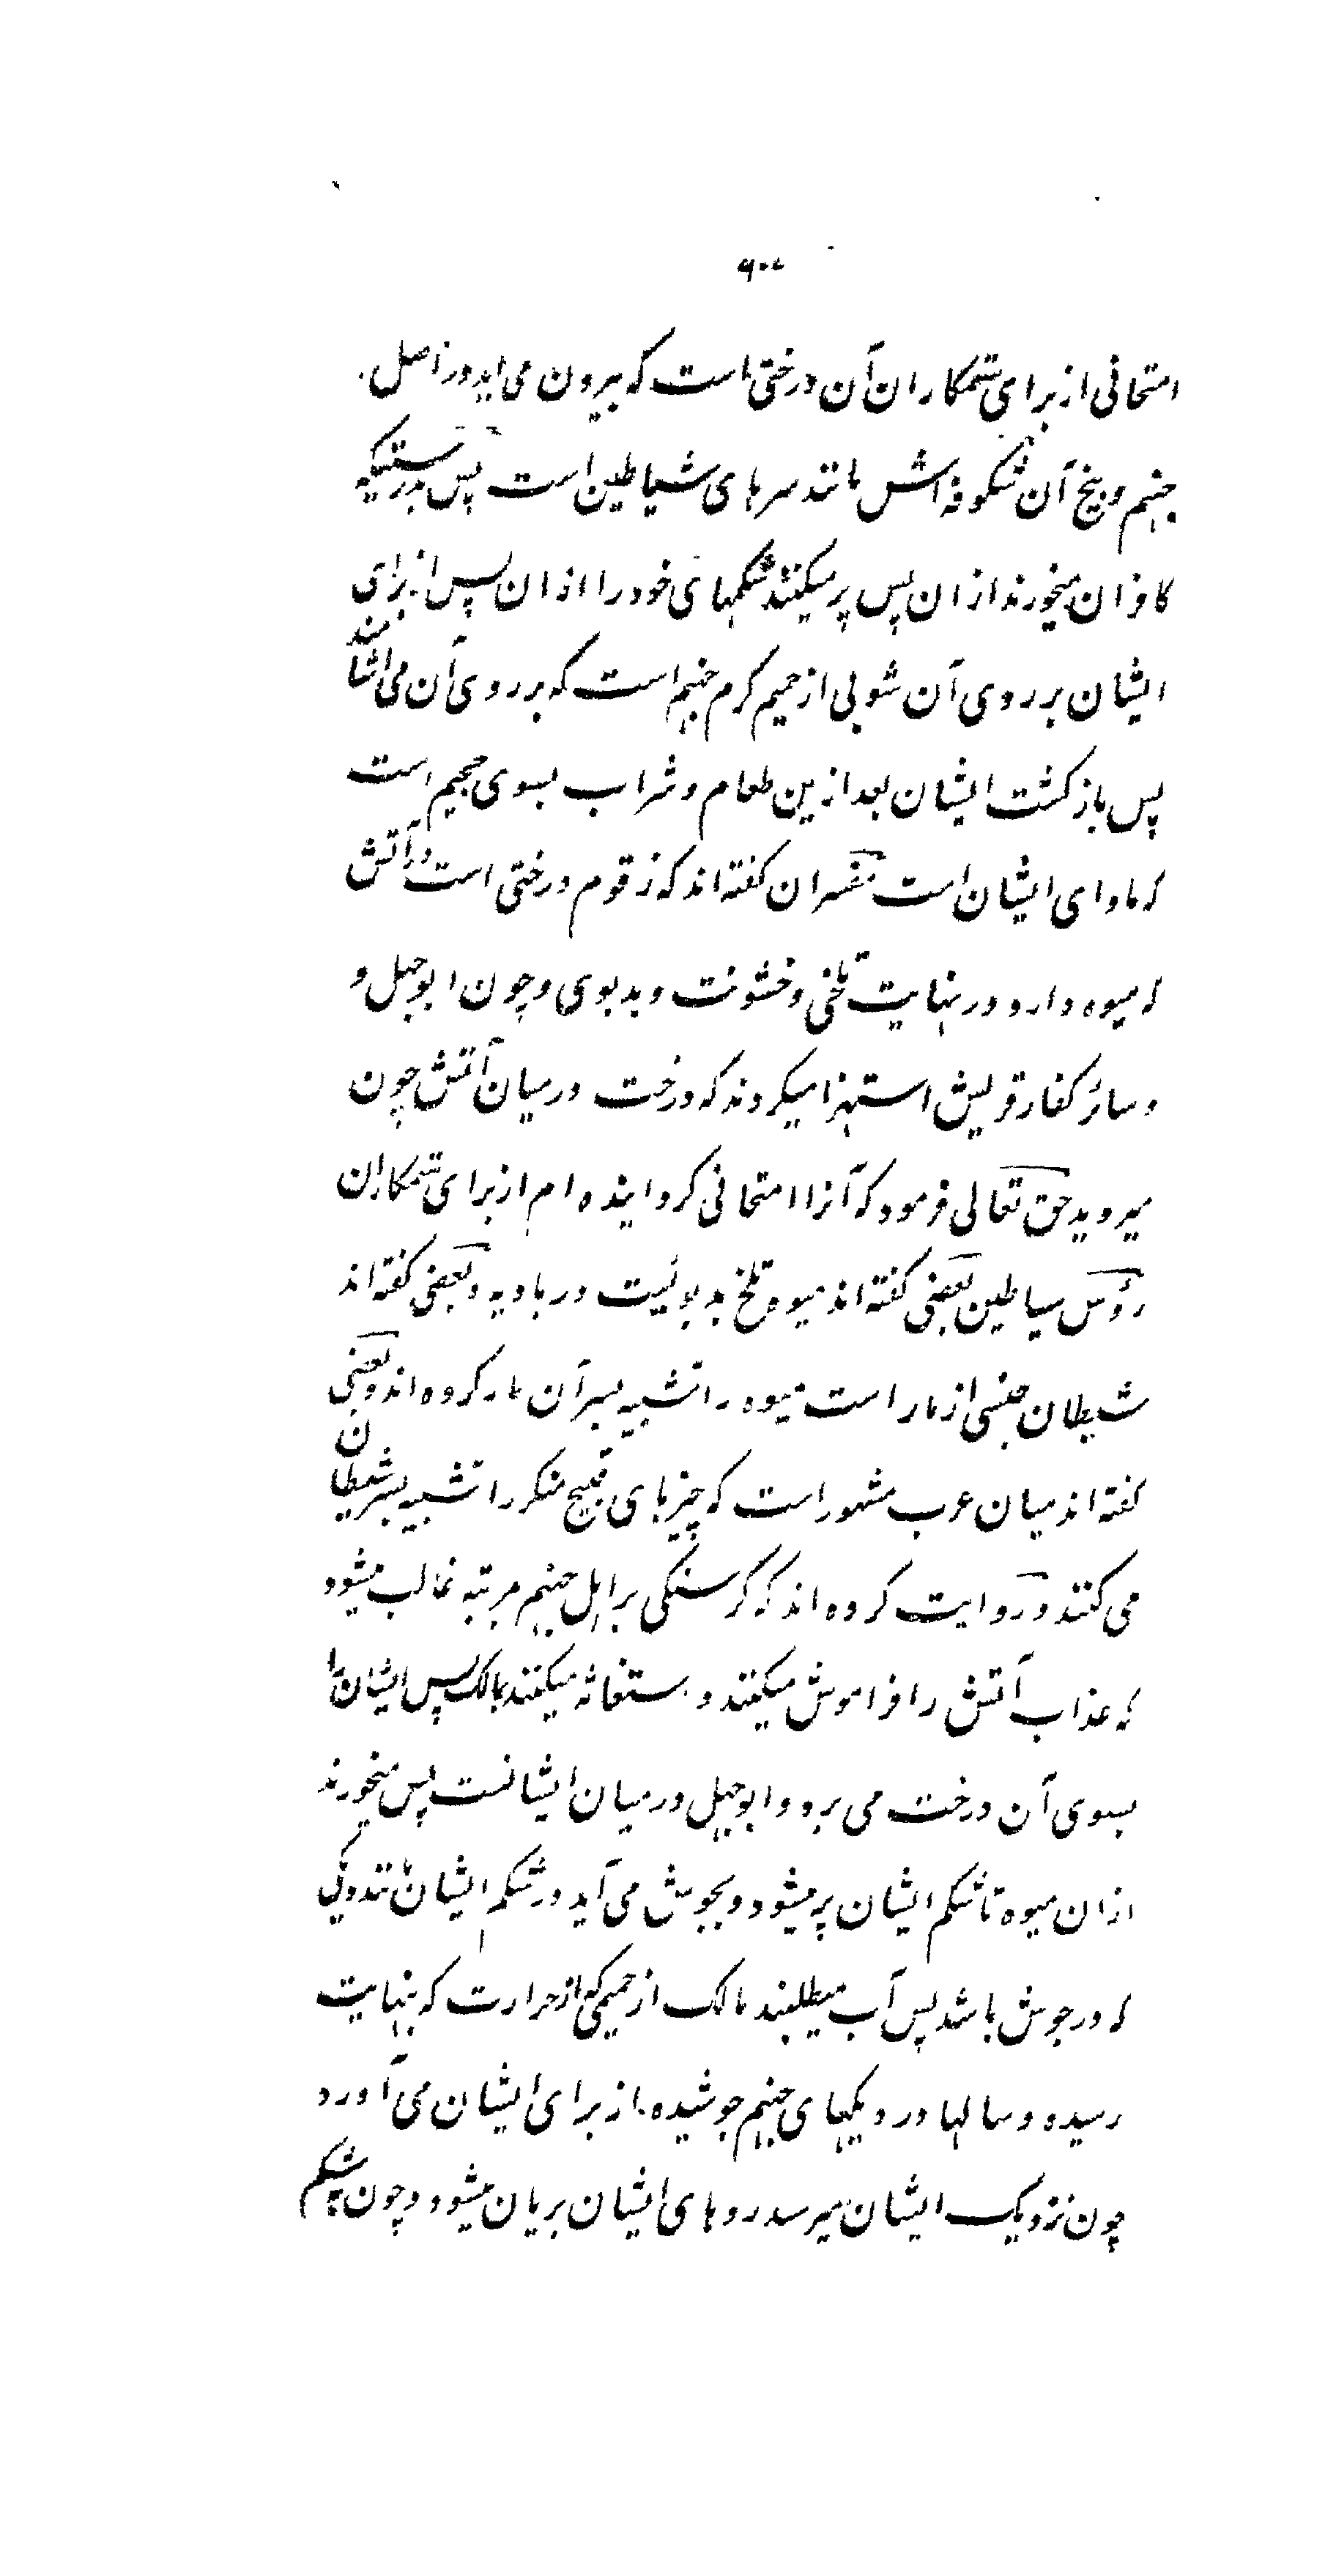 ۹۰۰
امتحانی از برای ستمکاران آن درختی است که بیرون می اید در اصل
جهنم و بیخ آن شکوفه اش مانند سرهای شیاطین است پس بدرستیکه
کافران میخورند از ان پس پر میکنند شکمهای خود را از ان پس از برای
ایشان بر روی آن شوبی از حمیم کرم جهنم است که بر روی آن می اشامند
پس بازکشت ایشان بعد ازین طعام و شراب بسوی جحیم است
که ماوای ایشان است مفسران کفته اند که زقوم درختی است در آتش
که میوه دارد در نهایت تلخی و خشونت و بدبوی و چون ابوجهل و
و سائر کفار قریش استهزا میکردند که درخت در میان آتش چون
میروید حق تعالی فرمود که آنرا امتحانی کردانیده ام از برای ستمکاران
رؤس سیاطین بعضی کفته اند میوه تلخ بدبوئیست در بادیه و بعضی کفته اند
شیطان جنسی از مار است میوه را تشبیه بسر آن مار کرده اند و بعضی
کفته اند میان عرب مشهور است که چیزهای قبیح منکر را تشبیه بسر شیطان
می کنند و روایت کرده اند که کرسنکی بر اهل جهنم مرتبه غالب میشود
که عذاب آتش را فراموش میکنند و استغاثه میکنند بمالک پس ایشان را
بسوی آن درخت می برد و ابوجهل در میان ایشانست پس میخورند
از ان میوه تا شکم ایشان پر میشود و بجوش می آید در شکم ایشان مانند دیکی
که در جوش باشد پس آب میطلبند مالک از حمیمی که از حرارت که بنهایت
رسیده و سالها در دیکهای جهنم جوشیده از برای ایشان می آورد
چون نزدیک ایشان میرسد روهای ایشان بریان میشود و چون بشکم